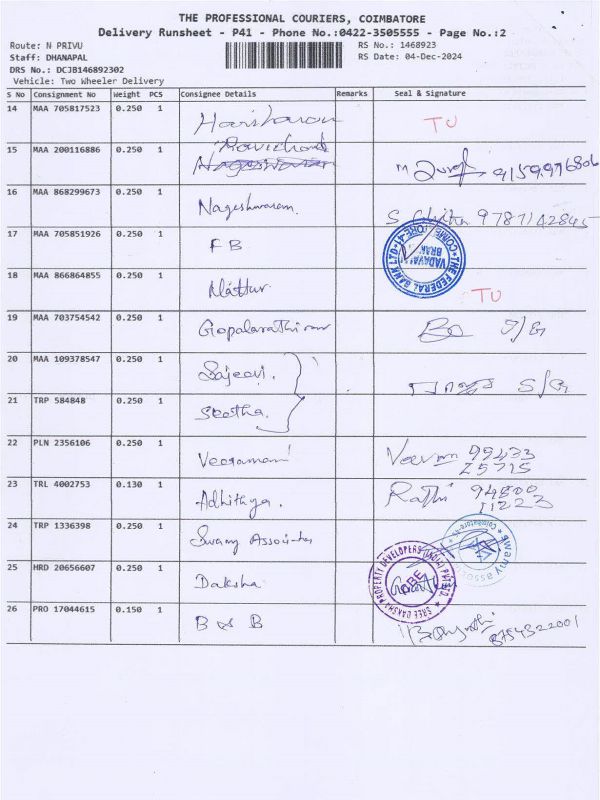 THE PROFESSIONAL COURIERS, COIMBATORE
Delivery Runsheet - P41 - Phone No.:0422-3505555 - Page No.:2
Route: N PRIVU RS No.: 1468923
Staff: DHANAPAL RS Date: 04-Dec-2024
DRS No.: DCJB146892302
Vehicle: Two Wheeler Delivery
S No Consignment No Weight PCS Consignee Details Remarks Seal & Signature
14 MAA 705817523 0.250 1 Harisharan TU
15 MAA 200116886 0.250 1 9159976806
16 MAA 868299673 0.250 1 Nageshwaram S 9787142845
17 MAA 705851926 0.250 1 F B THE FEDERAL BANK LTD
18 MAA 866864855 0.250 1 TU
19 MAA 703754542 0.250 1
20 MAA 109378547 0.250 1 Sajeevi.
21 TRP 584848 0.250 1 Seetha.
22 PLN 2356106 0.250 1 Veeramani 99433
25715
23 TRL 4002753 0.130 1 Adhithya. Rathi 94800
11223
24 TRP 1336398 0.250 1 Swamy Associates Swamy associates Coimbatore
25 HRD 20656607 0.250 1 Daksha SREE DAKSHA PROPERTY DEVELOPERS (INDIA) PVT LTD
26 PRO 17044615 0.150 1 B & B 8754322001